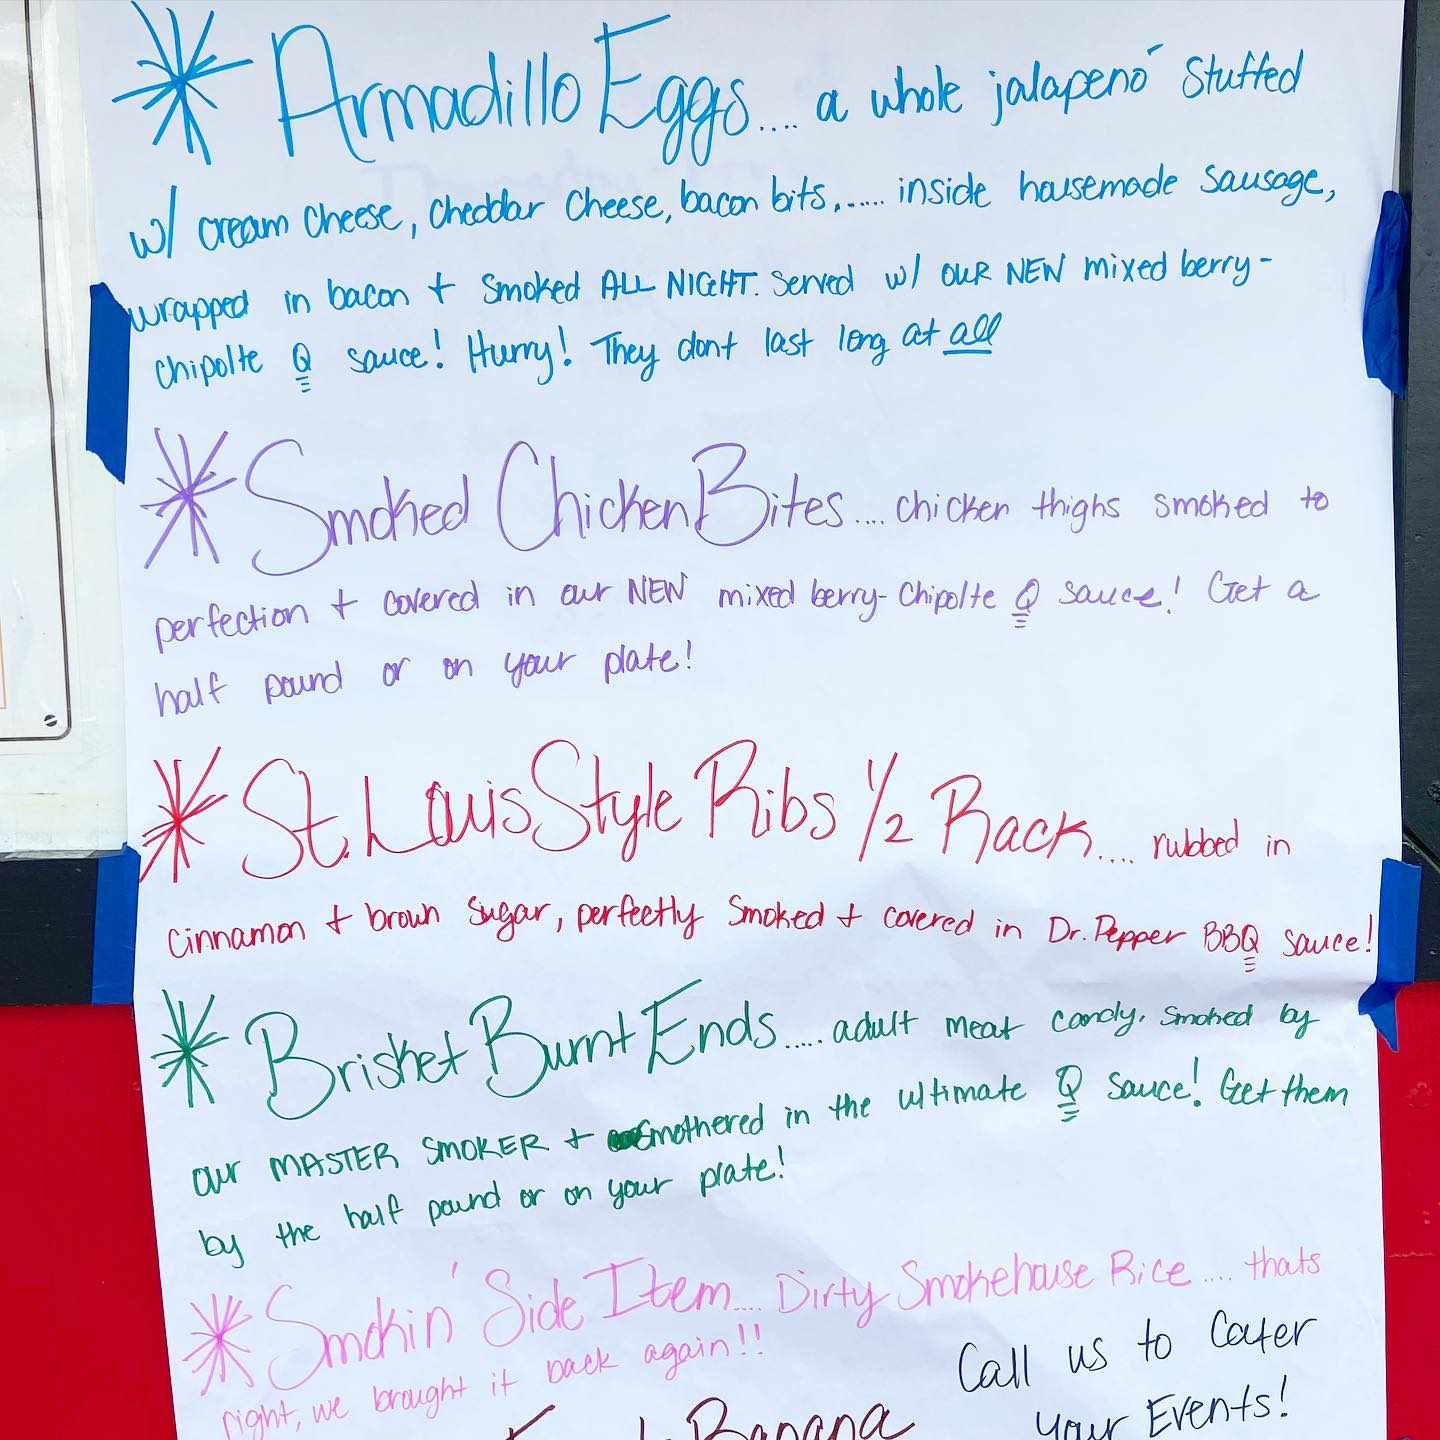 * Armadillo Eggs.... a whole jalapenó stuffed
w/ cream cheese, cheddar cheese, bacon bits,..... inside housemade sausage,
wrapped in bacon + smoked ALL NIGHT. Served w/ OUR NEW mixed berry-
chipolte Q sauce! Hurry! They dont last long at all
* Smoked Chicken Bites.... chicken thighs smoked to
perfection + covered in our NEW mixed berry- chipolte Q sauce! Get a
half pound or on your plate!
* St. Louis Style Ribs 1/2 Rack.... rubbed in
cinnamon + brown sugar, perfectly smoked + covered in Dr. Pepper BBQ sauce!
* Brisket Burnt Ends..... adult meat candy. Smoked by
our MASTER SMOKER + smothered in the ultimate Q sauce! Get them
by the half pound or on your plate!
* Smokin' Side Item.... Dirty Smokehouse Rice.... thats
right, we brought it back again!!
Call us to Cater
your Events!
Banana